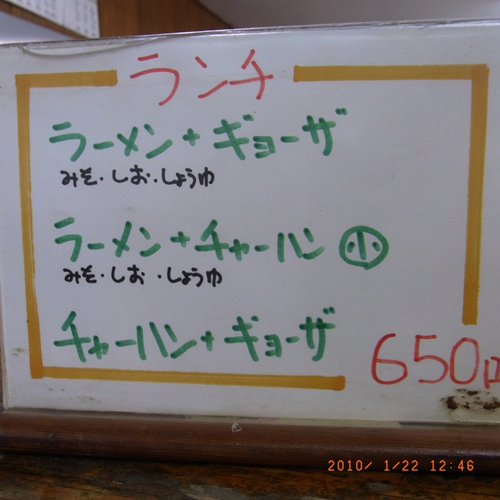 ランチ
ラーメン+ギョーザ
みそ・しお・しょうゆ
ラーメン+チャーハン小
みそ・しお・しょうゆ
チャーハン+ギョーザ
650円
2010/ 1/22 12:46